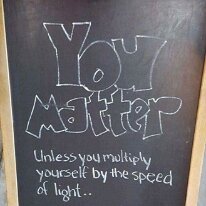 You
Matter
Unless you multiply
yourself by the speed
of light..